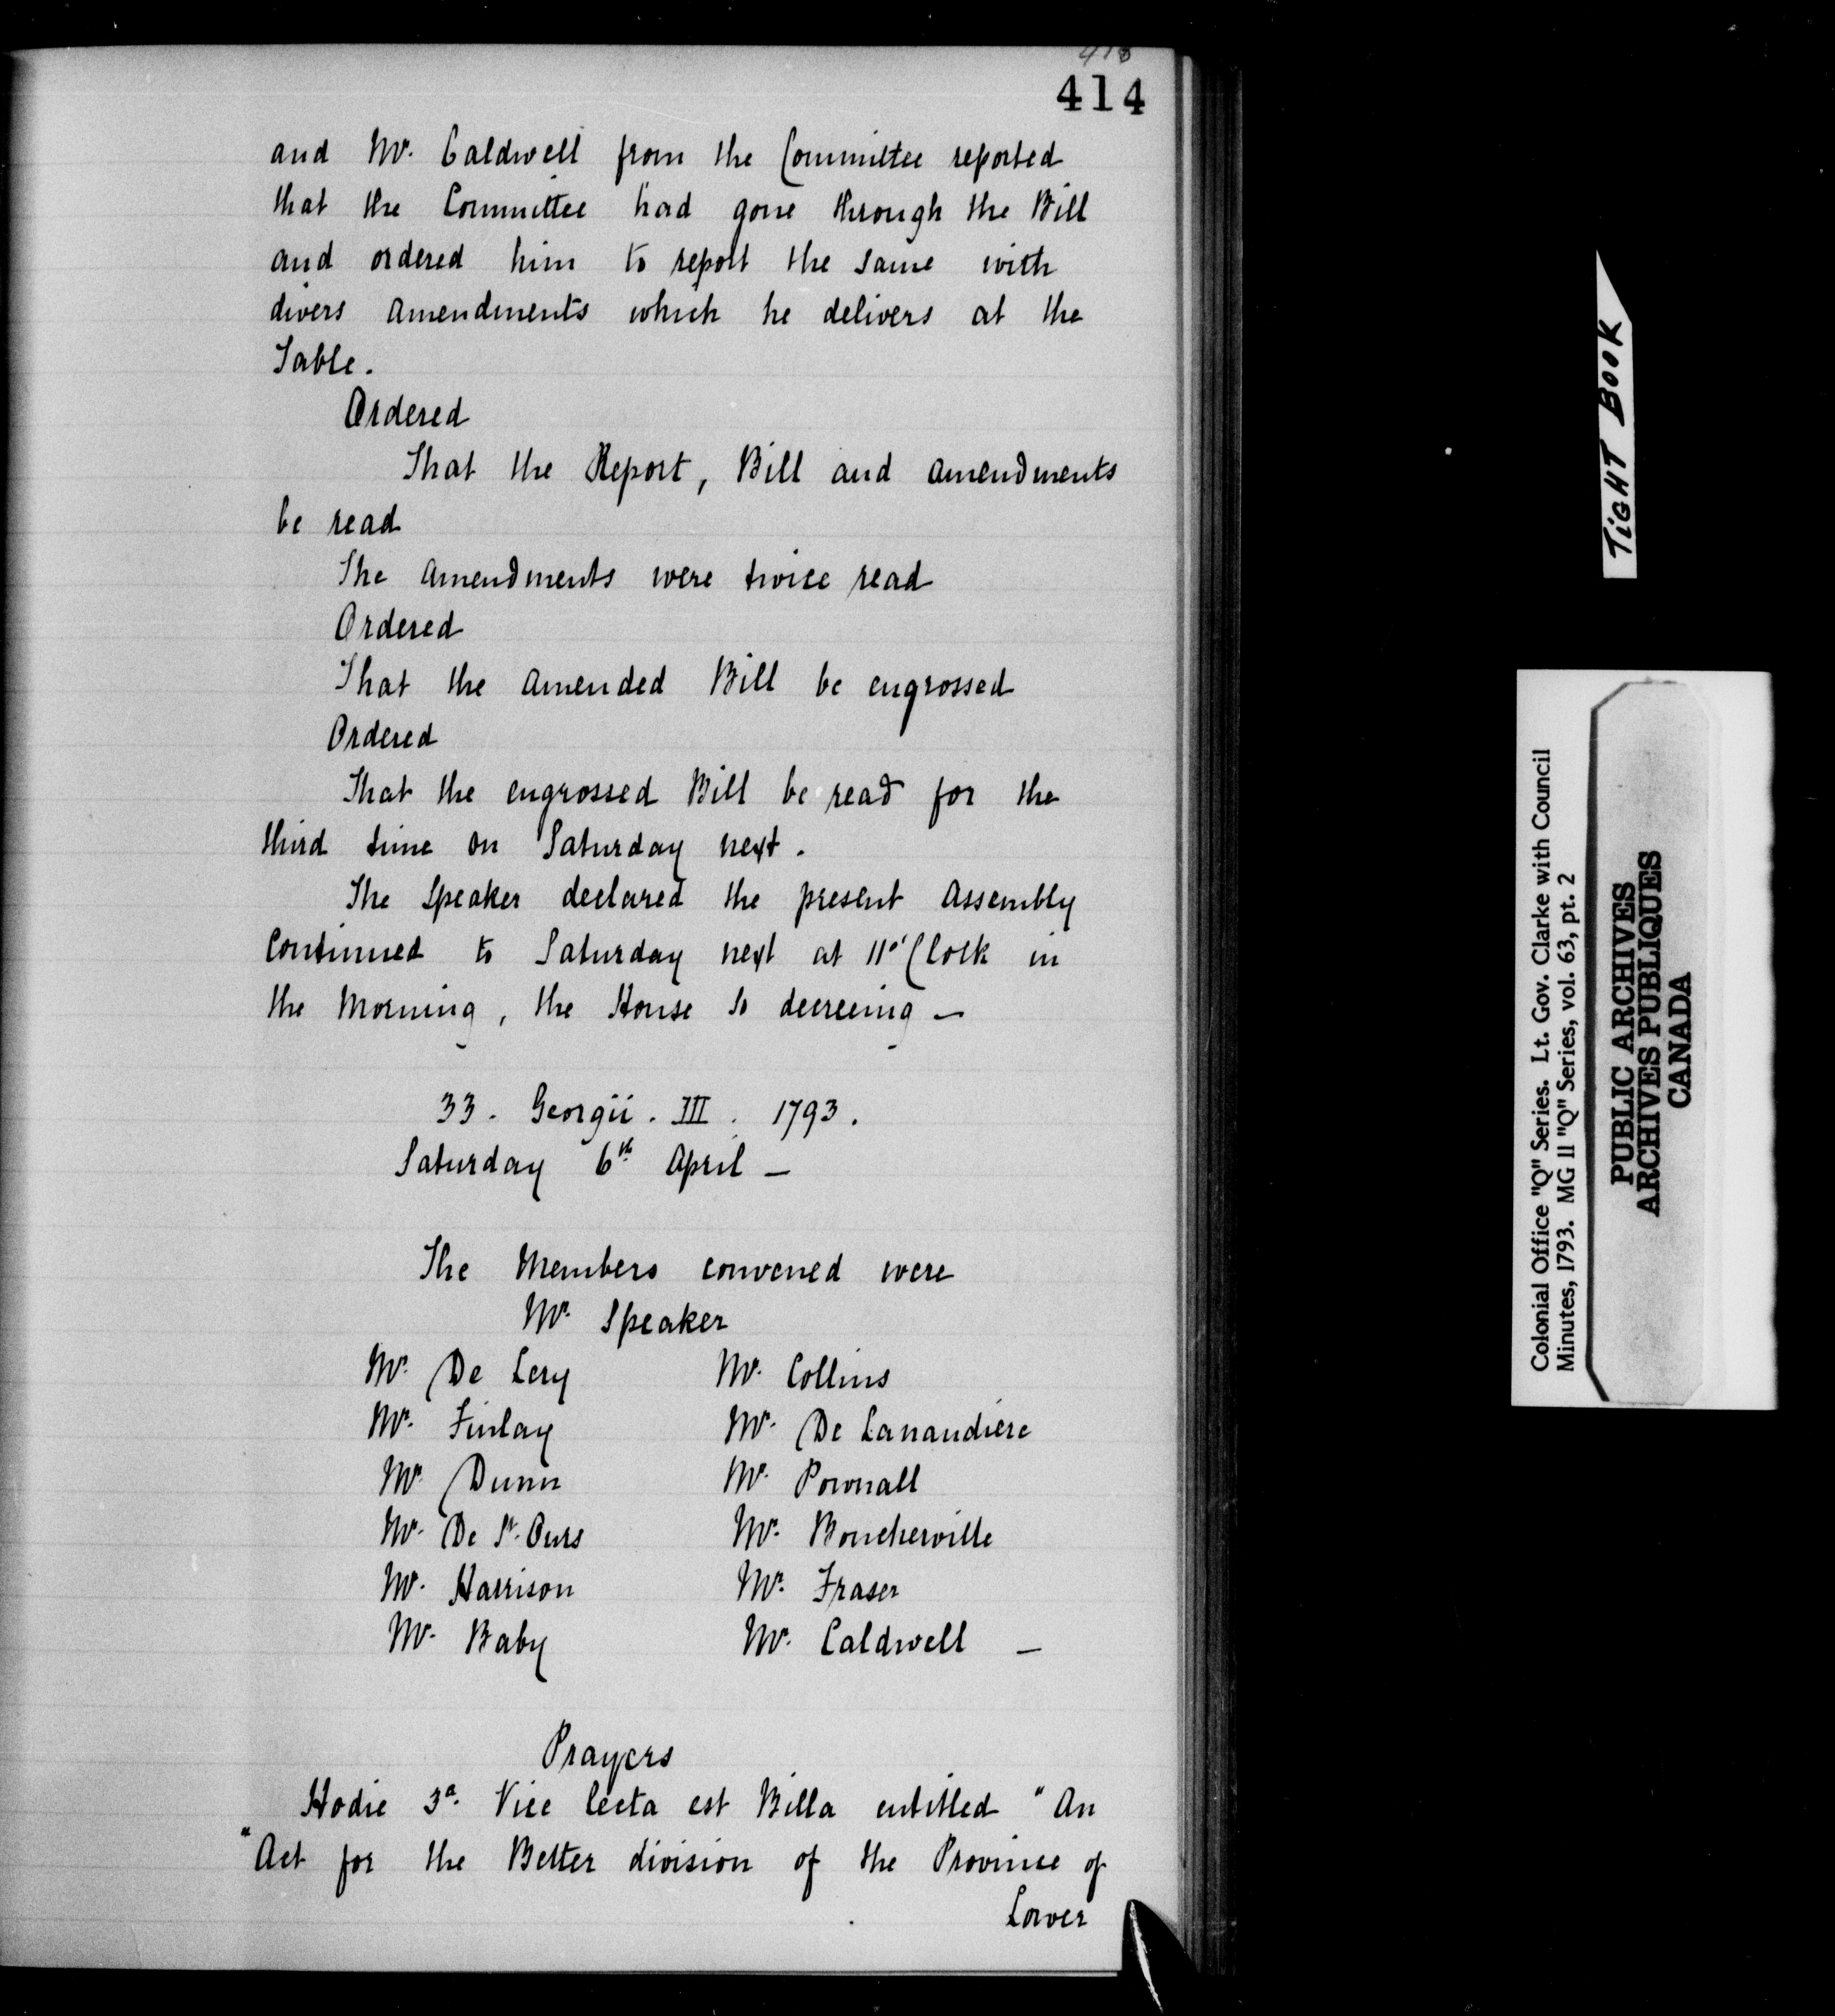 414
and Mr. Caldwell from the Committee reported
that the Committee had gone through the Bill
and ordered him to report the same with
divers amendments which he delivers at the
Table.
Ordered
That the Report, Bill and amendments
be read
The amendments were twice read
Ordered
That the amended Bill be engrossed
Ordered
That the engrossed Bill be read for the
third time on Saturday next.
The Speaker declared the present assembly
Continued to Saturday next at 11 o'Clock in
the Morning, the House so decreeing —
33. Georgii. III. 1793.
Saturday 6th April —
The Members convened were
Mr. Speaker
Mr. De Lery Mr. Collins
Mr. Finlay Mr. De Lanaudiere
Mr. Dunn Mr. Pownall
Mr. De St. Ours Mr. Boucherville
Mr. Harrison Mr. Fraser
Mr. Baby Mr. Caldwell —
Prayers
Hodie 3a. Vice lecta est Billa entitled "An
"Act for the Better division of the Province of
Lower
TIGHT BOOK
Colonial Office "Q" Series. Lt. Gov. Clarke with Council
Minutes, 1793. MG 11 "Q" Series, vol. 63, pt. 2
PUBLIC ARCHIVES
ARCHIVES PUBLIQUES
CANADA